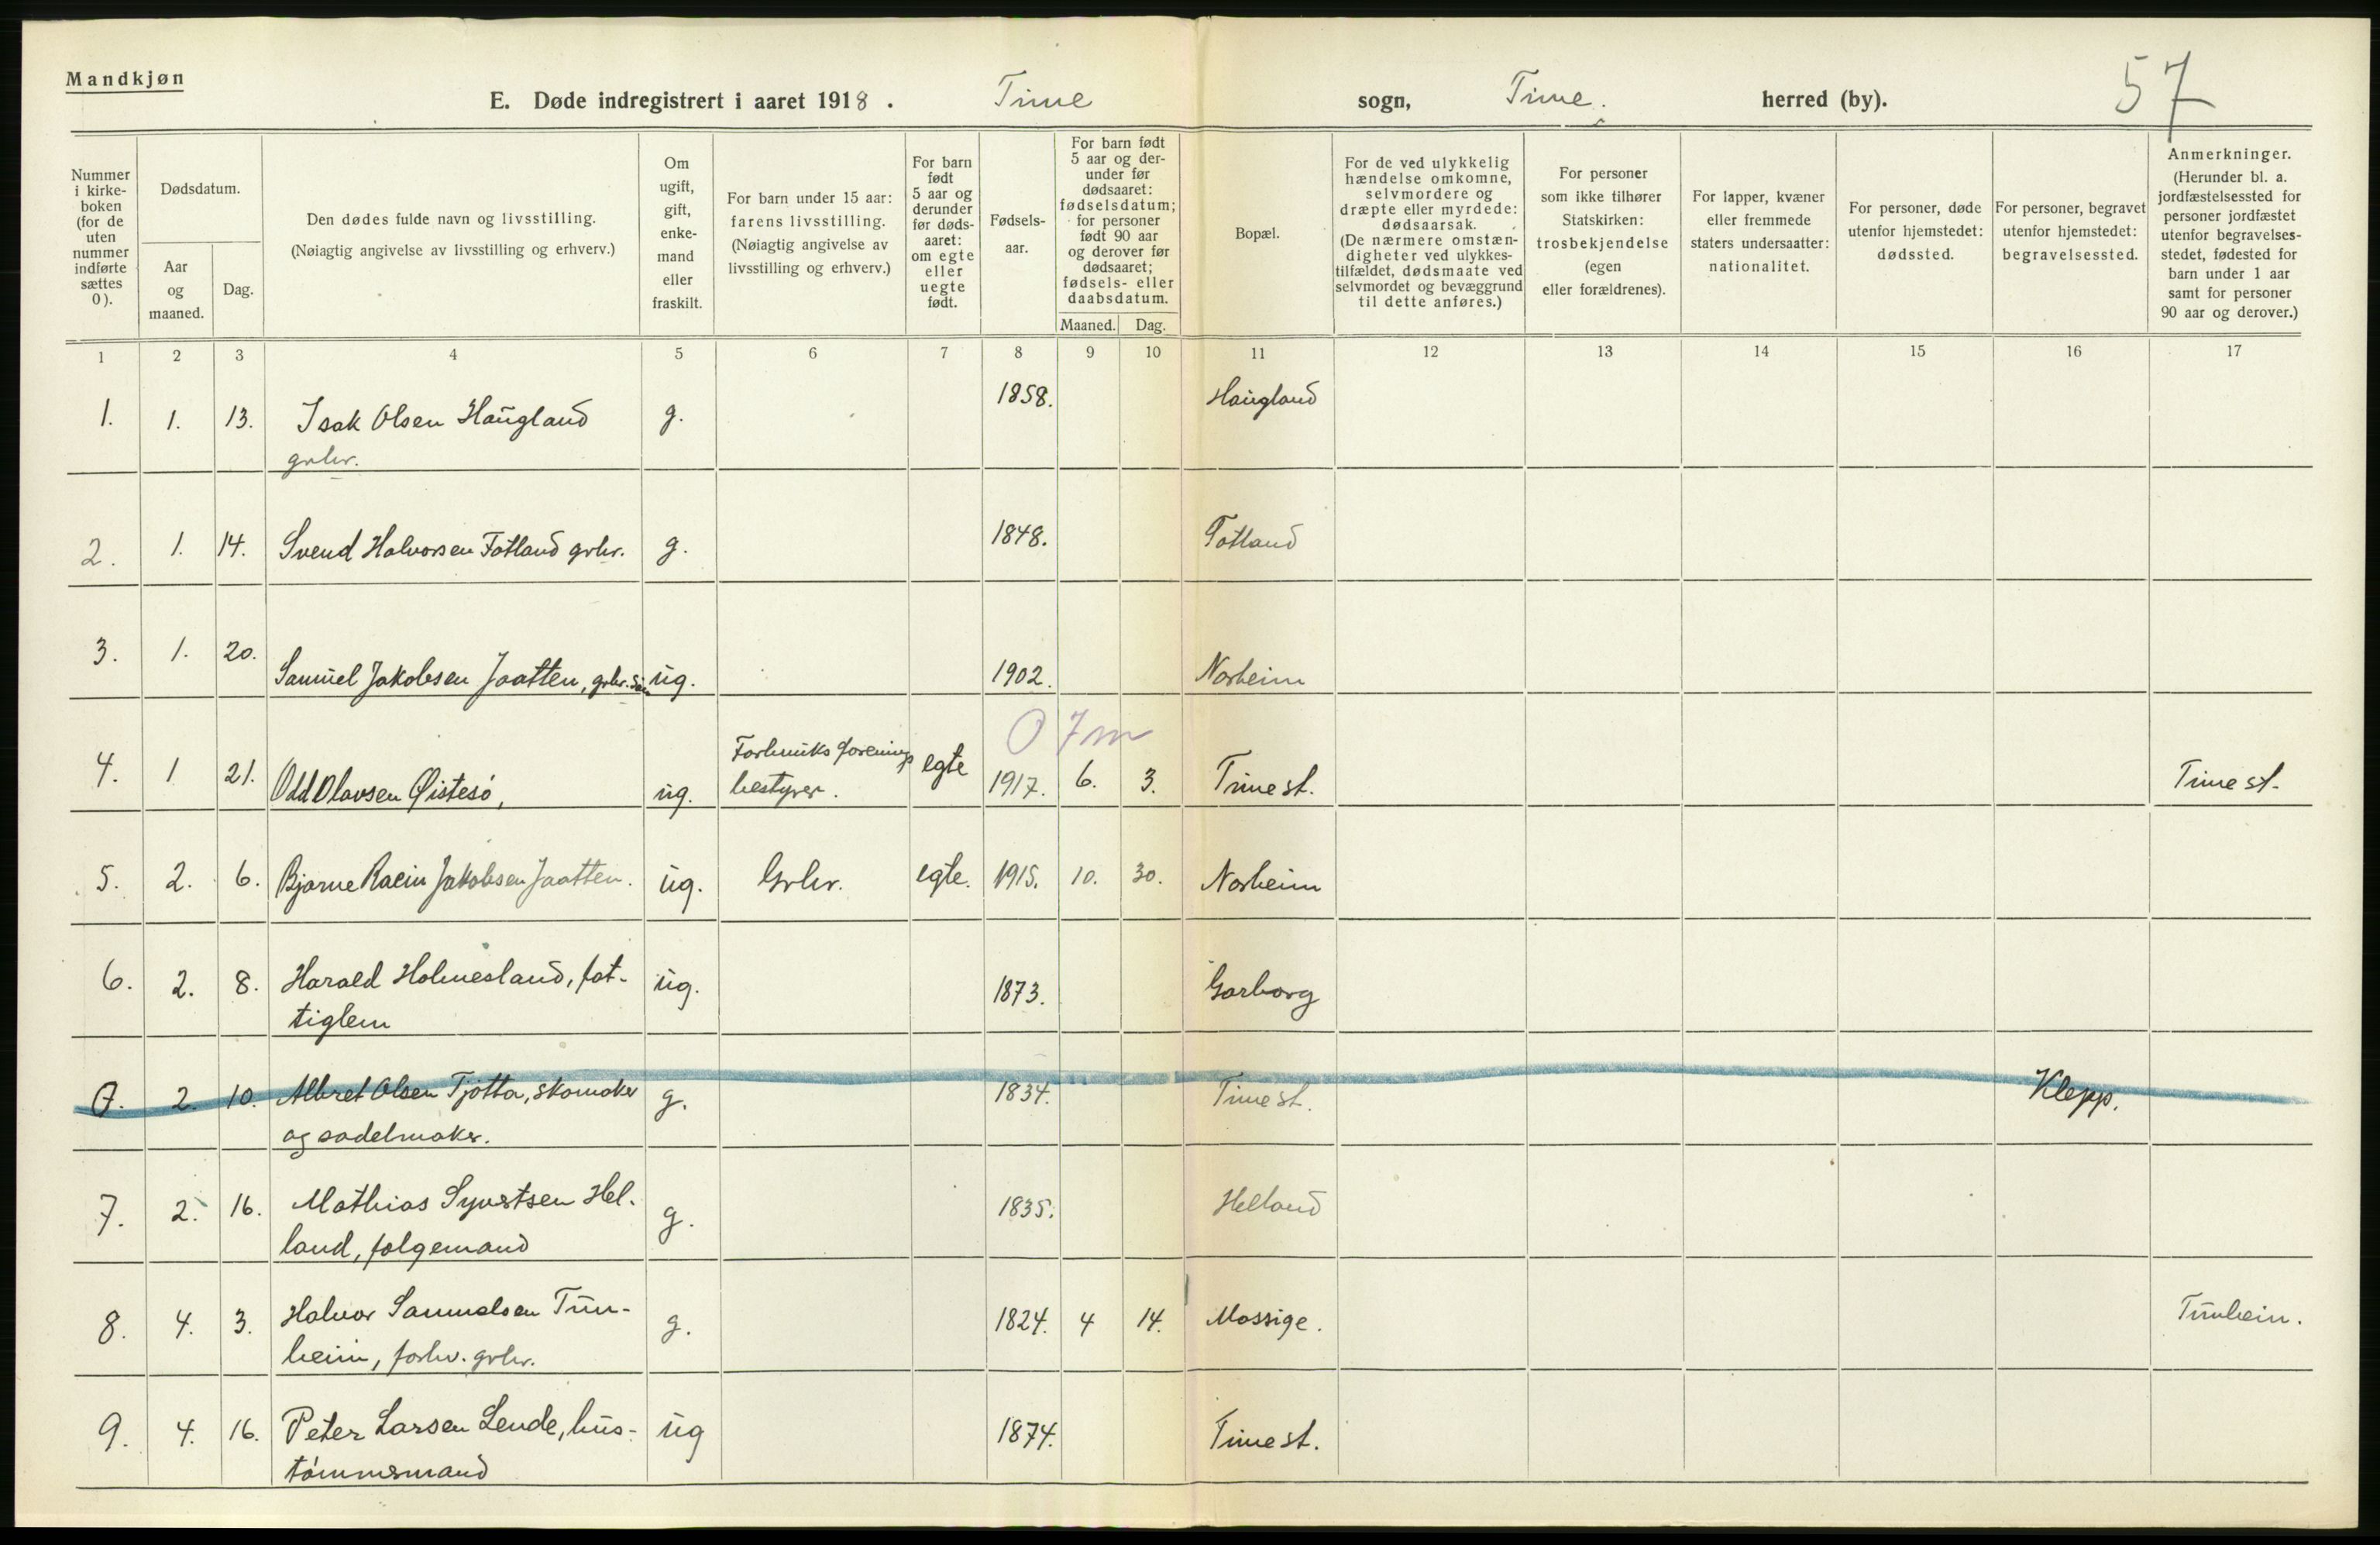 Mandkjøn
E. Døde indregistrert i aaret 1918. Time sogn, Time. herred (by). 57
Nummer i kirke-boken (for de uten nummer indførte sættes 0).
Dødsdatum.
Aar og maaned.
Dag.
Den dødes fulde navn og livsstilling.
(Nøiagtig angivelse av livsstilling og erhverv.)
Om ugift, gift, enke-mand eller fraskilt.
For barn under 15 aar: farens livsstilling. (Nøiagtig angivelse av livsstilling og erhverv.)
For barn født 5 aar og derunder før døds-aaret: om egte eller uegte født.
Fødsels-aar.
For barn født 5 aar og der-under før dødsaaret: fødselsdatum; for personer født 90 aar og derover før dødsaaret; fødsels- eller daabsdatum.
Maaned. Dag.
Bopæl.
For de ved ulykkelig hændelse omkomne, selvmordere og dræpte eller myrdede: dødsaarsak. (De nærmere omstæn-digheter ved ulykkes-tilfældet, dødsmaate ved selvmordet og bevæggrund til dette anføres.)
For personer som ikke tilhører Statskirken: trosbekjendelse (egen eller forældrenes).
For lapper, kvæner eller fremmede staters undersaatter: nationalitet.
For personer, døde utenfor hjemstedet: dødssted.
For personer, begravet utenfor hjemstedet: begravelsessted.
Anmerkninger. (Herunder bl. a. jordfæstelsessted for personer jordfæstet utenfor begravelses-stedet, fødested for barn under 1 aar samt for personer 90 aar og derover.)
1 2 3 4 5 6 7 8 9 10 11 12 13 14 15 16 17
1. 1. 13. Isak Olsen Haugland g. 1858. Haugland
grbr.
2. 1. 14. Svend Halvorsen Fotland grbr. g. 1848. Fotland
3. 1. 20. Samuel Jakobsen Jaatten, grbr. søn ug. 1902. Norheim
0 7m
4. 1 21. Odd Olavsen Øistesø, ug. Forbruksforenings egte 1917. 6. 3. Time st. Time st.
bestyrer.
5. 2. 6. Bjarne Racin Jakobsen Jaatten. ug. Grbr. egte. 1915. 10. 30. Norheim
6. 2. 8. Harald Holmesland, fat- ug. 1873. Garborg
tiglem
0. 2. 10. Albret Olsen Tjøtta, skomaker g. 1834. Time st. Klepp.
og sadelmaker.
7. 2. 16. Mathias Syvertsen Hel- g. 1835. Helland
land, følgemand
8. 4. 3. Halvor Samuelsen Tun- g. 1824. 4 14. Mossige. Tunheim.
heim, forhv. grbr.
9. 4. 16. Peter Larsen Lende, hus- ug 1874. Time st.
tømmermand